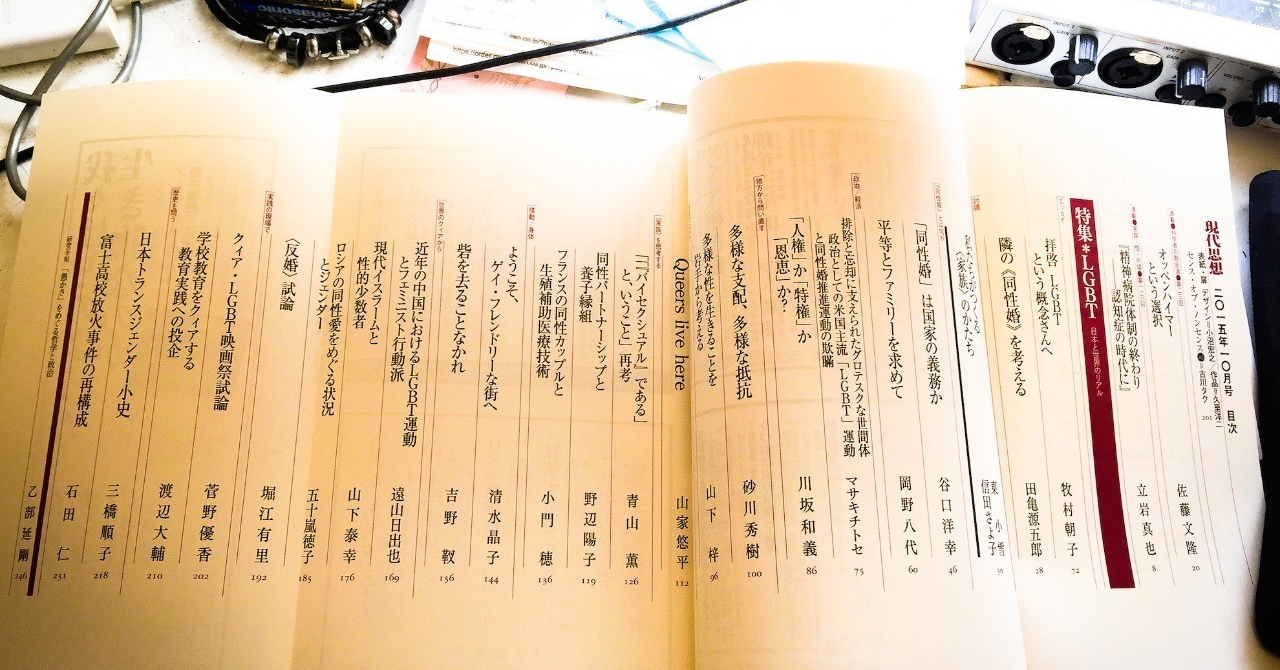 現代思想 二〇一五年一〇月号 目次
表紙・扉 デザイン=小沼宏之/作品=久里洋二
センス・オブ・ノンセンス 古川タク 201
オッペンハイマー
という選択
佐藤文隆 20
『精神病院体制の終わり
認知症の時代に』
立岩真也 8
特集*LGBT 日本と世界のリアル
エッセイ
拝啓 LGBT
という概念さんへ
牧村朝子 72
隣の《同性婚》を考える
田亀源五郎 28
討議
私たちがつくる
〈家族〉のかたち
東小雪
信田さよ子 30
「同性婚」は国家の義務か
谷口洋幸 46
平等とファミリーを求めて
岡野八代 60
政治/経済
排除と忘却に支えられたグロテスクな世間体
政治としての米国主流「LGBT」運動
と同性婚推進運動の欺瞞
マサキチトセ 75
「人権」か「特権」か
「恩恵」か?
川坂和義 86
地方から問い直す
多様な支配、多様な抵抗
砂川秀樹 100
多様な性を生きることを
岩手から考える
山下梓 96
Queers live here
山家悠平 112
「家族」を再考する
「『バイセクシュアル』である」
と、いうこと」再考
青山薫 126
同性パートナーシップと
養子縁組
野辺陽子 119
フランスの同性カップルと
生殖補助医療技術
小門穂 136
情動/身体
ようこそ、
ゲイ・フレンドリーな街へ
清水晶子 144
砦を去ることなかれ
吉野靫 156
世界のクィアから
近年の中国におけるLGBT運動
とフェミニスト行動派
遠山日出也 169
現代イスラームと
性的少数者
山下泰幸 176
ロシアの同性愛をめぐる状況
とジェンダー
五十嵐徳子 185
〈反婚〉試論
堀江有里 192
実践の現場で
クィア・LGBT映画祭試論
菅野優香 202
学校教育をクィアする
教育実践への投企
渡辺大輔 210
歴史を問う
日本トランスジェンダー小史
三橋順子 218
富士高校放火事件の再構成
石田仁 231
研究手帖 「愚かさ」をめぐる哲学と政治
乙部延剛 246
Panasonic
INPUT 1
INPUT 2